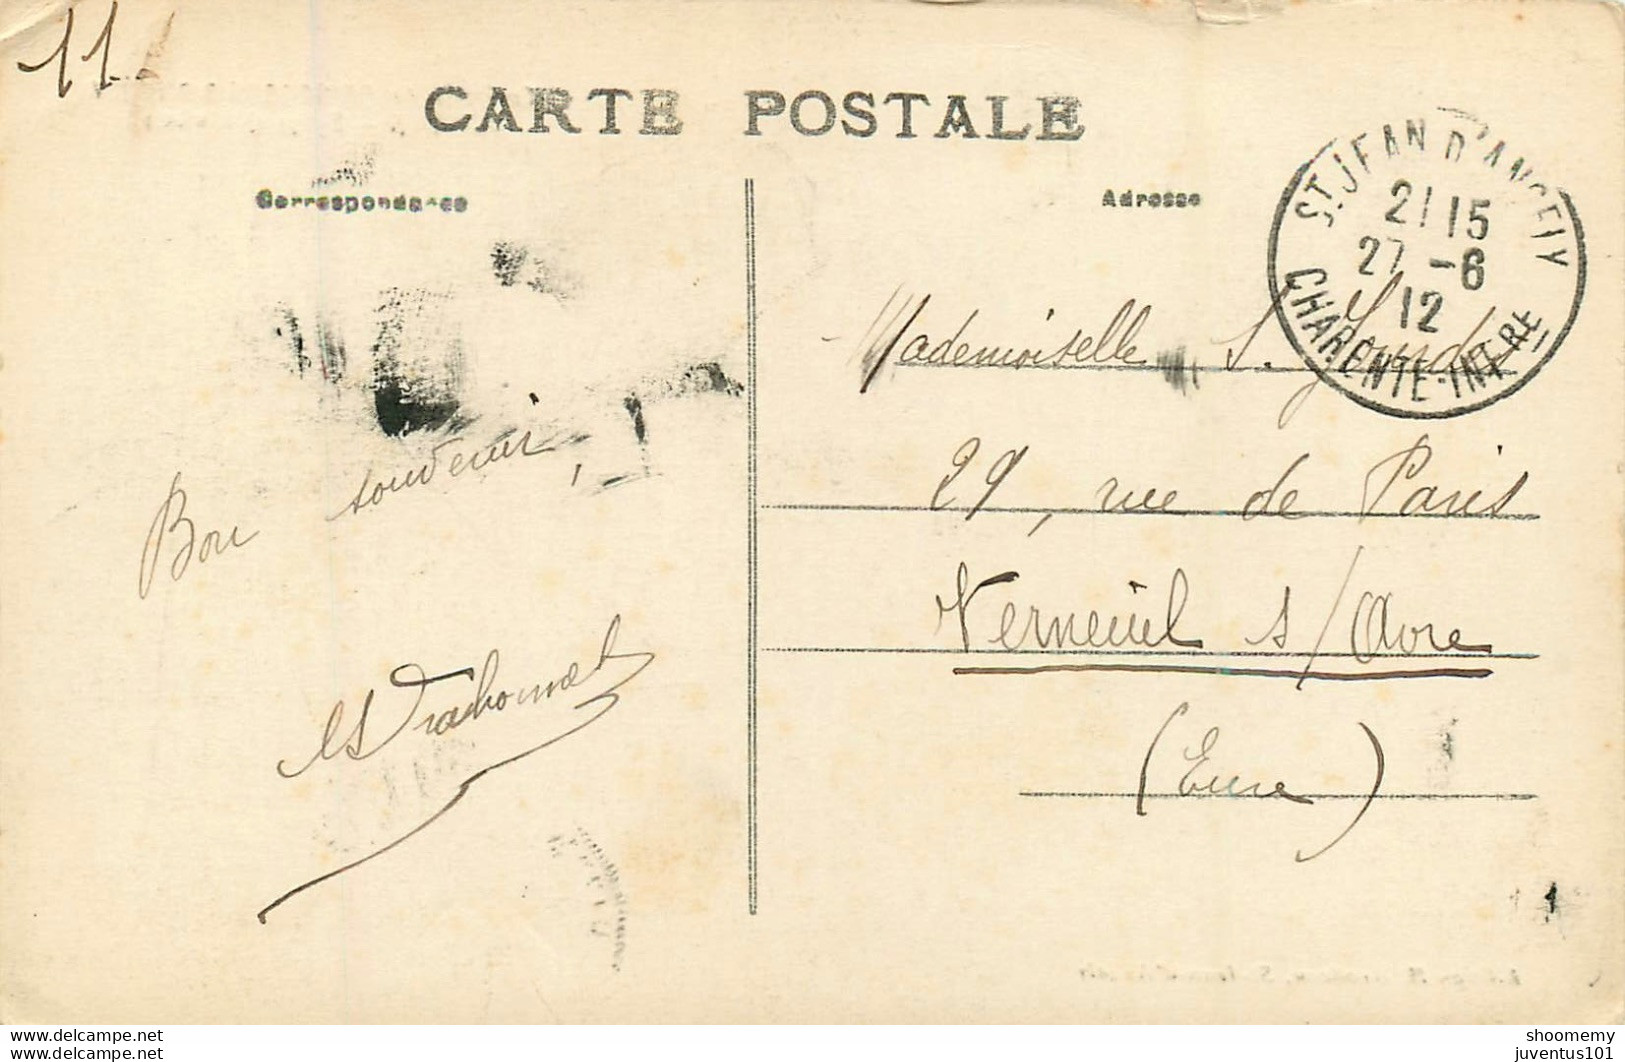 11.
CARTE POSTALE
Correspondance
Adresse
ST JEAN D'ANGELY
21 15
27 - 6
12
CHARENTE-INFRE
Mademoiselle S.
29, rue de Paris
Verneuil s/ Avre
(Eure)
Bon souvenir,
shoomemy
juventus101